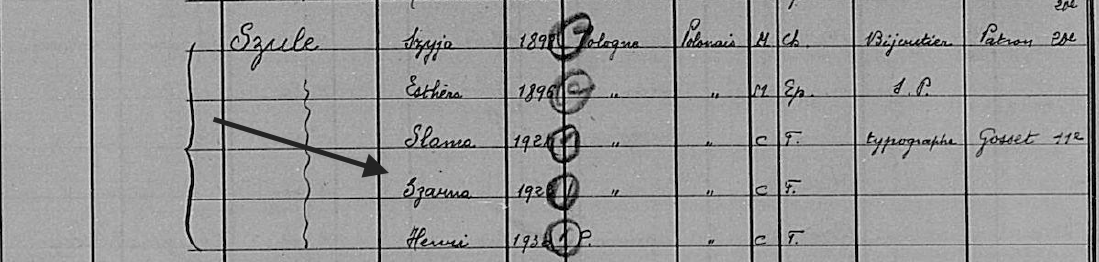 20e
Szule Szyja 1898 Pologne Polonais M Ch. Bijoutier Patron 20e
Esthéra 1896 " " M Ep. S.P.
Slama 192 " " C F. typographe Gosset 11e
Szarna 192 " " C F.
Henri 193 P. " C F.